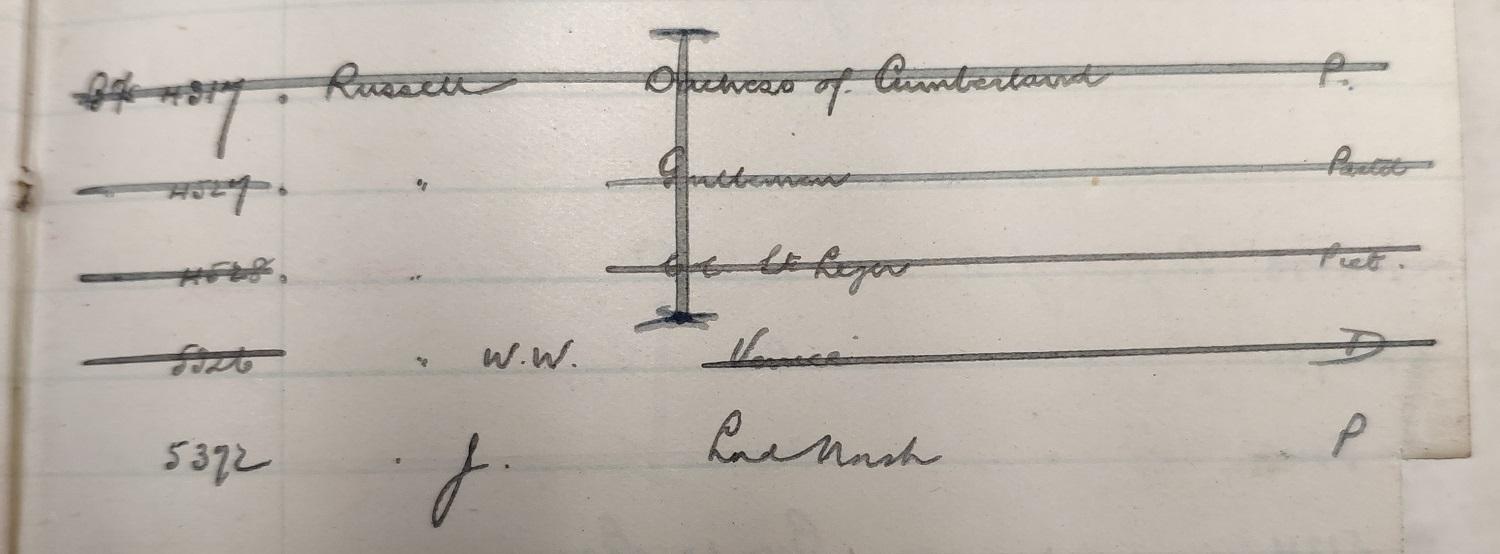 4317. Russell Duchess of Cumberland P.
4527. " Gentleman Pastel
4528. " Col St Leger Pict.
5326 " W.W. Venice D
5392 . J. Lad Nash P